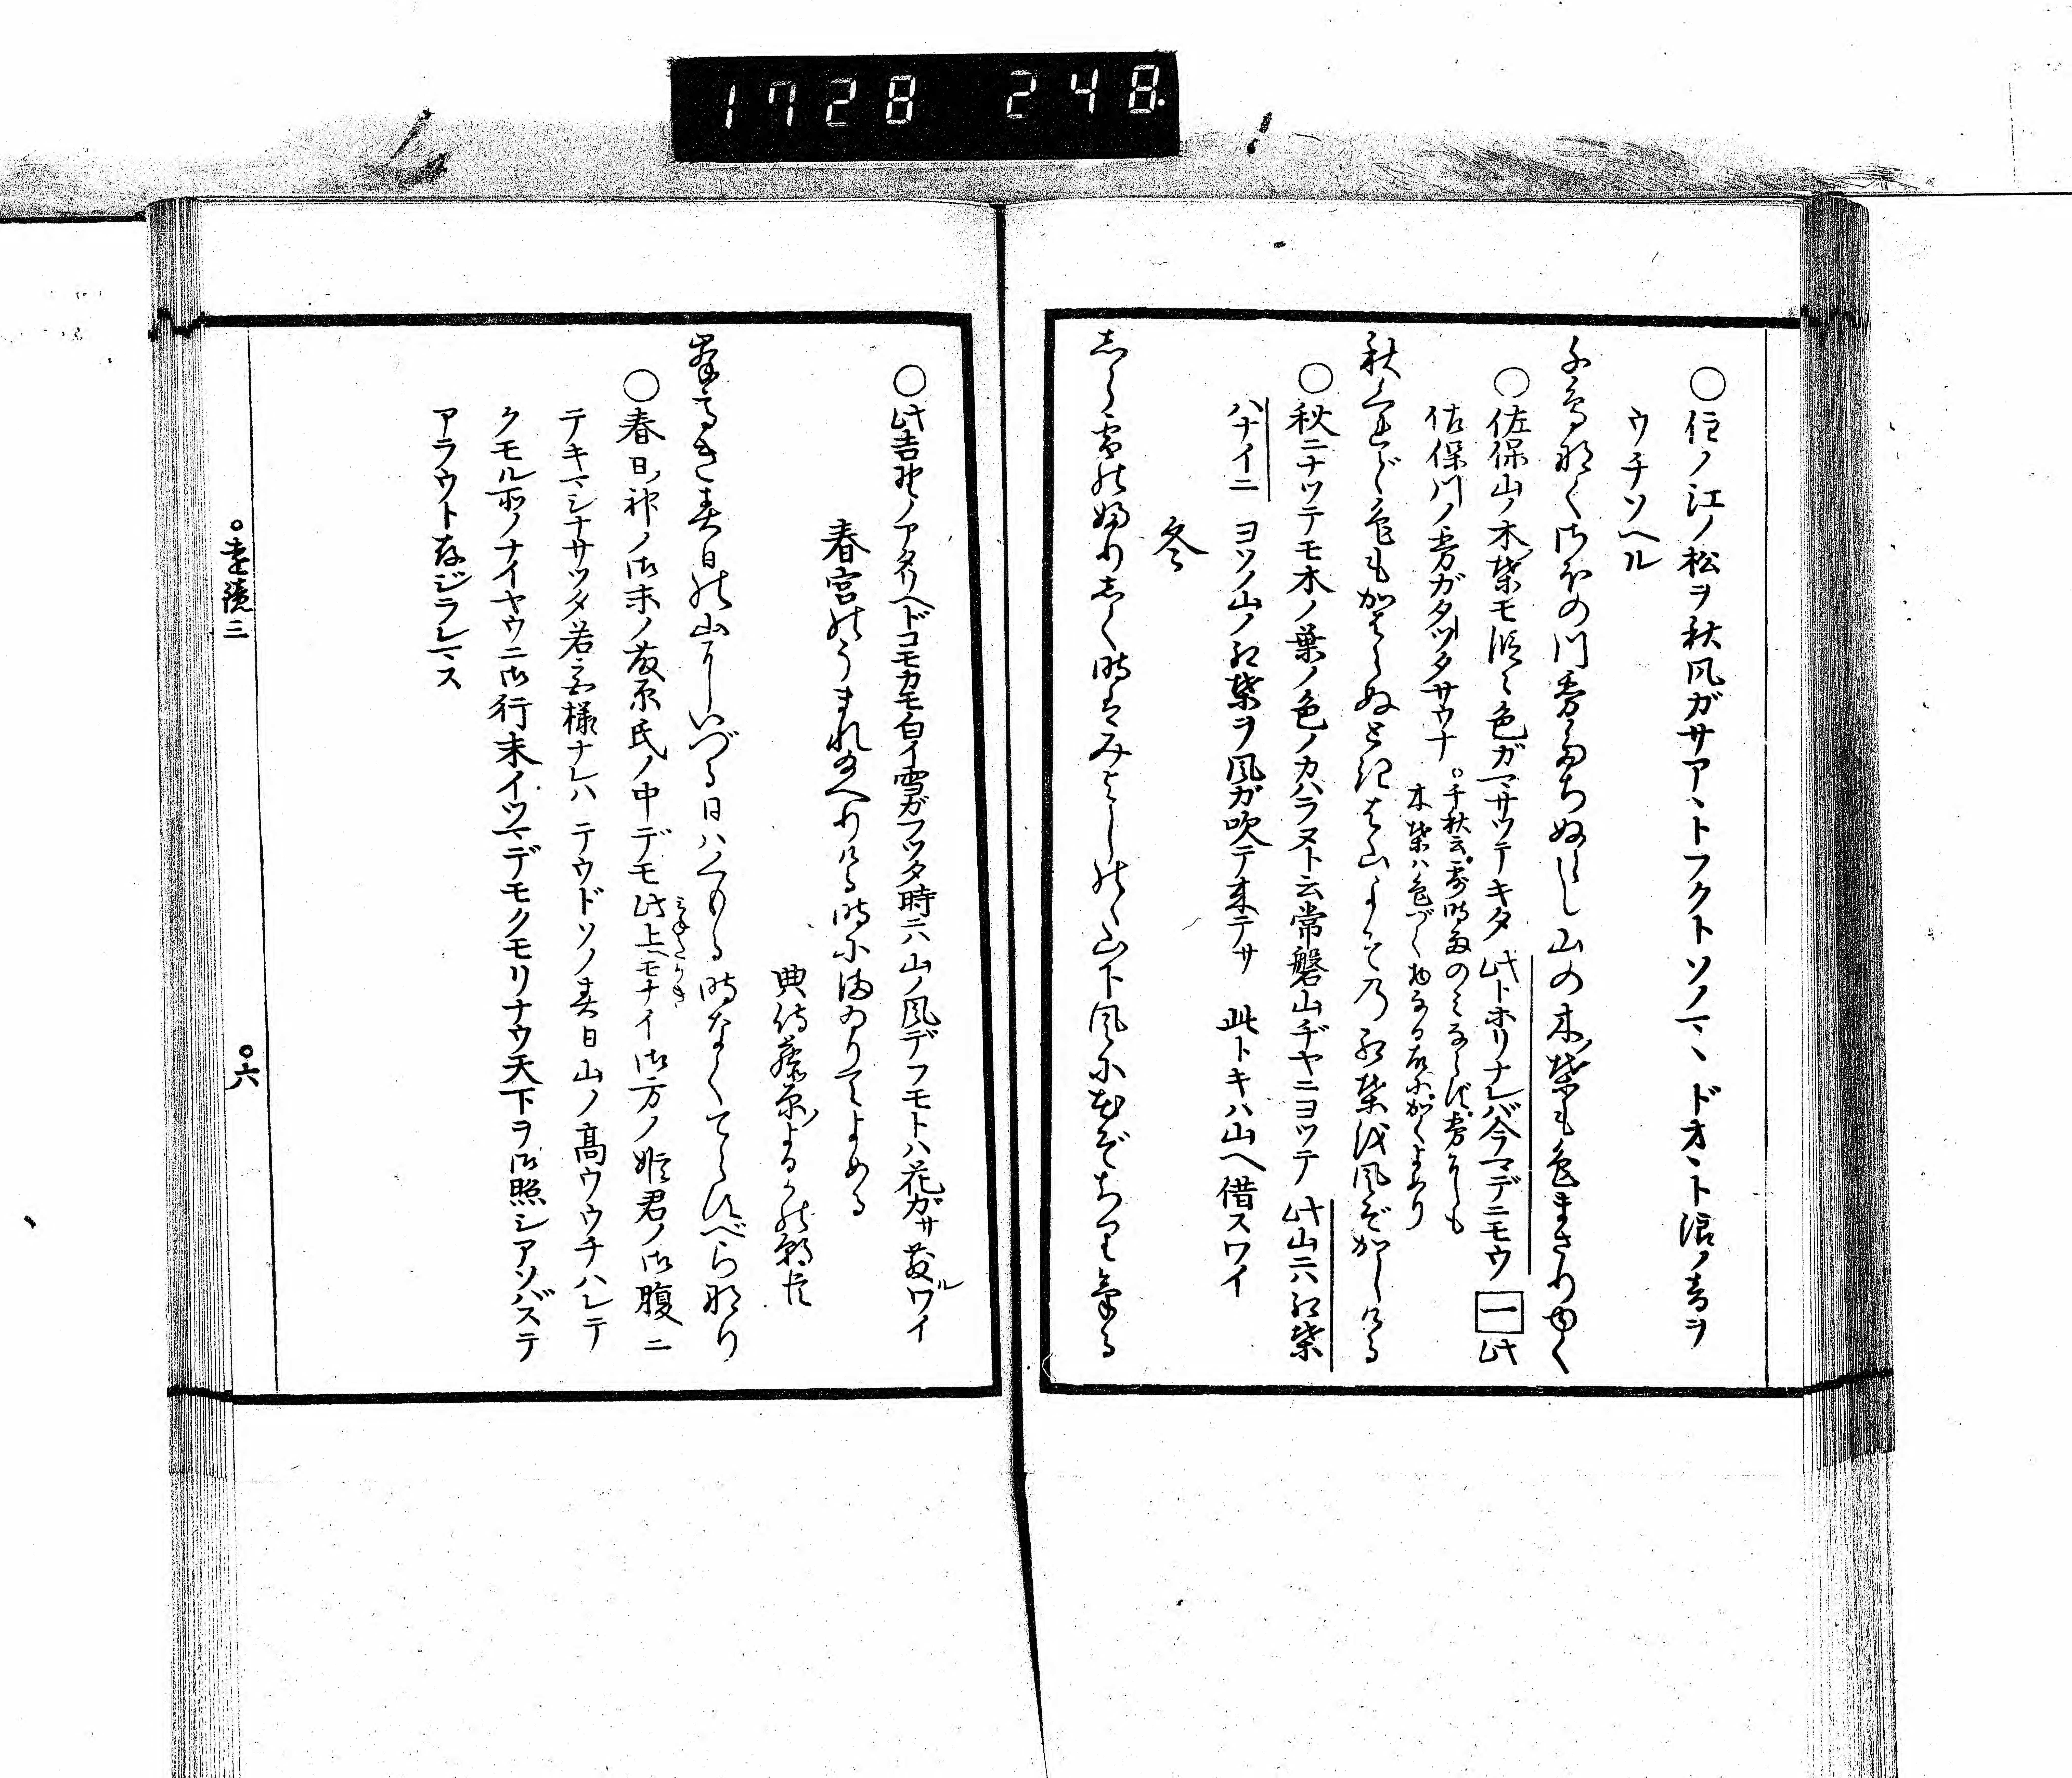 1728 248
○住ノ江ノ松ヲ秋風ガサアヽトフクトソノマヽ ドオヽト浪ノ音ヲ
ウチソヘル
千鳥啼くさほの川霧たちぬらし山の木葉も色まさりゆく
○佐保山ノ木葉モ段々色ガマサツテキタ 此トホリナレバ今マデニモウ 一 此
佐保川ノ霧ガタツタサウナ
○千秋云、時雨のみならず、霧にも
木葉は色づく物なる故にかくよめり
秋くれど色もかはらぬときは山よその紅葉を風ぞかしける
○秋ニナツテモ木ノ葉ノ色ノカハラヌト云常磐山ヂヤニヨツテ 此山ニハ紅葉
ハナイニ ヨソノ山ノ紅葉ヲ風ガ吹テ来テサ 此トキハ山ヘ借スワイ
冬
しら雪のふりしく時はみよしのゝ山下風に花ぞちりける
○此吉野ノアタリヘドコモカモ白イ雪ガフツタ時ニハ山ノ風デフモトハ花ガサ散ルワイ
春宮のうまれ給へりける時にまゐりてよめる
典侍藤原よるかの朝臣
峯高き春日の山にいづる日はくもる時なくてらすべら也
○春日神ノ御末ノ藤原氏ノ中デモ此上モナイ御方ノ姫君ノ御腹ニ
テキマシナサツタ若宮様ナレハ テウドソノ春日山ノ高ウウチハレテ
クモル所ノナイヤウニ御行末イツマデモクモリナウ天下ヲ御照シアソバステ
アラウト存ジラレマス
○遠鏡三
○六